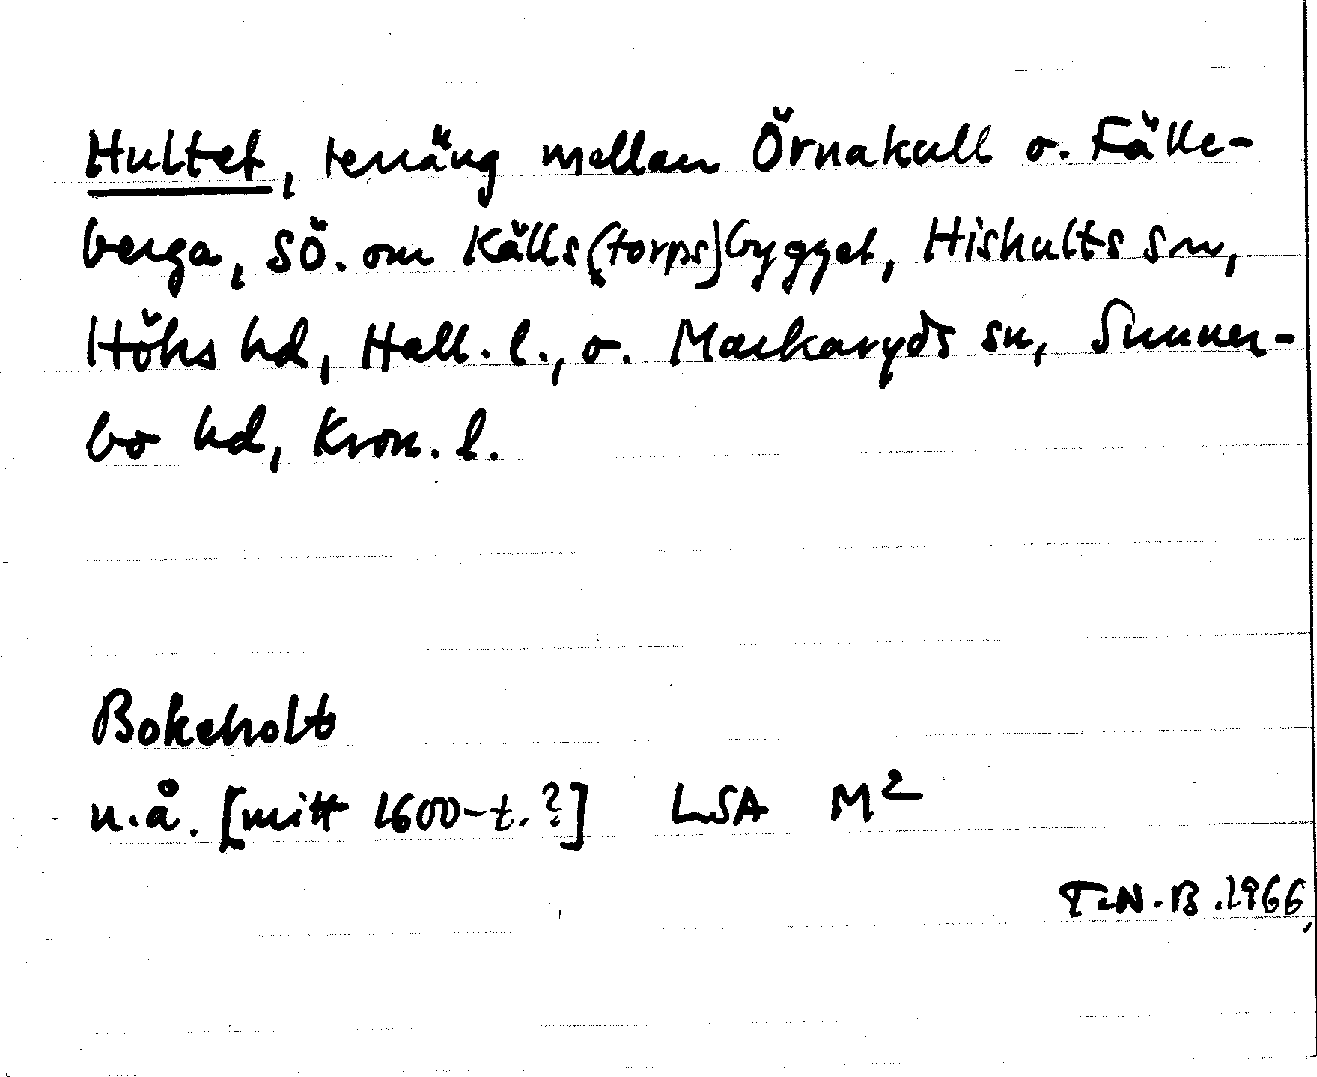 Hultet, terräng mellan Örnakull o. Fälle-
berga, SÖ. om Källs(torps)bygget, Hishults sn,
Höks hd, Hall. l., o. Markaryds sn, Sunner-
bo hd, Kron. l.
Bokeholt
u.å. [mitt 1600-t.?] LSA M2
T.N.B. 1966